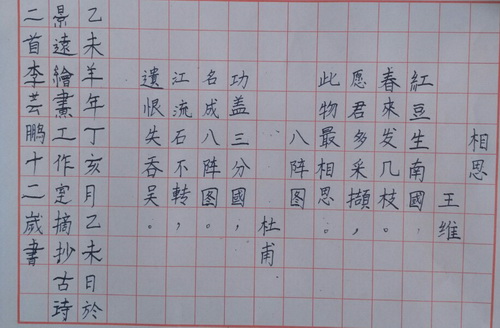 相思
王维
紅豆生南國
春來发几枝。
愿君多采擷，
此物最相思。
八阵图
杜甫
功盖三分國，
名成八阵图。
江流石不轉，
遺恨失吞吴。
乙未羊年丁亥月乙未日於
景遠繪畫工作室摘抄古诗
二首李芸鹏十二歲書